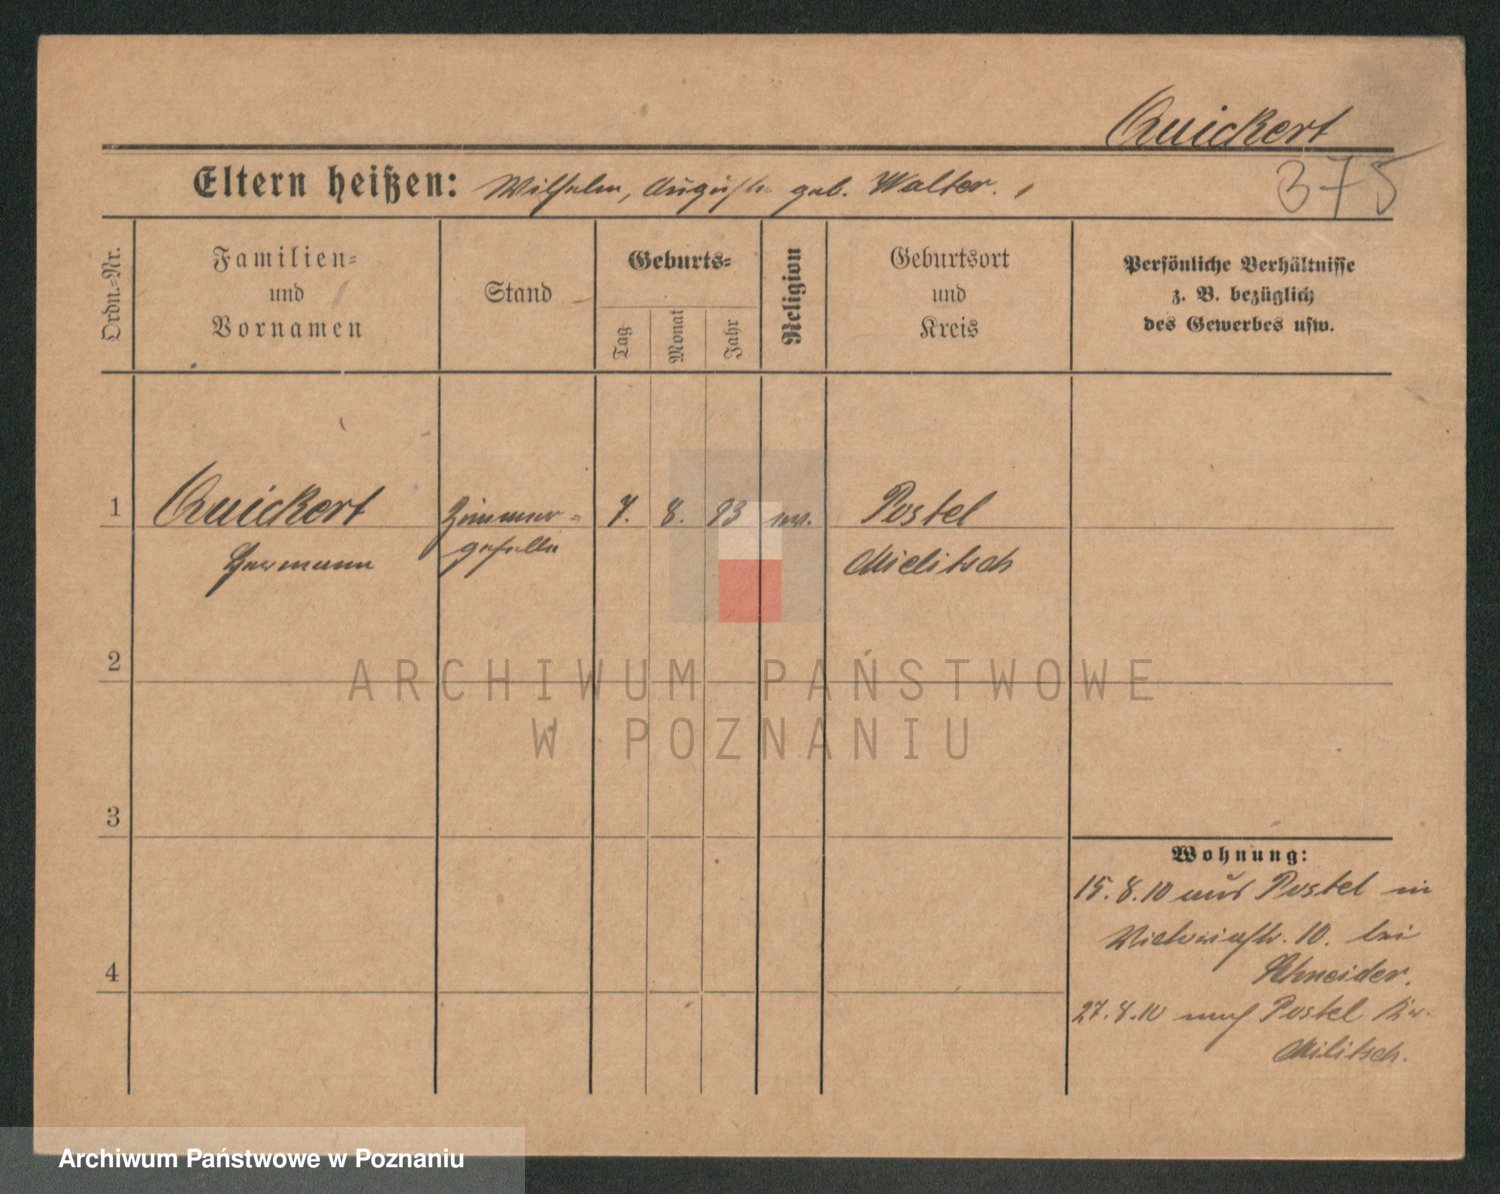 Quickert
375
Eltern heißen: Wilhelm, Auguste geb. Walter.
Ordn.-Nr.
Familien-
und
Vornamen
Stand
Geburts-
Tag
Monat
Jahr
Religion
Geburtsort
und
Kreis
Persönliche Verhältnisse
z. B. bezüglich
des Gewerbes usw.
1 Quickert Zimmer- 7. 8. 93 ev. Postel
Hermann geselle Mielitsch
2
3
4
Wohnung:
15.8.10 aus Postel in
Victoriastr. 10. bei
Schneider.
27.8.10 nach Postel Kr.
Militsch.
ARCHIWUM PAŃSTWOWE
W POZNANIU
Archiwum Państwowe w Poznaniu